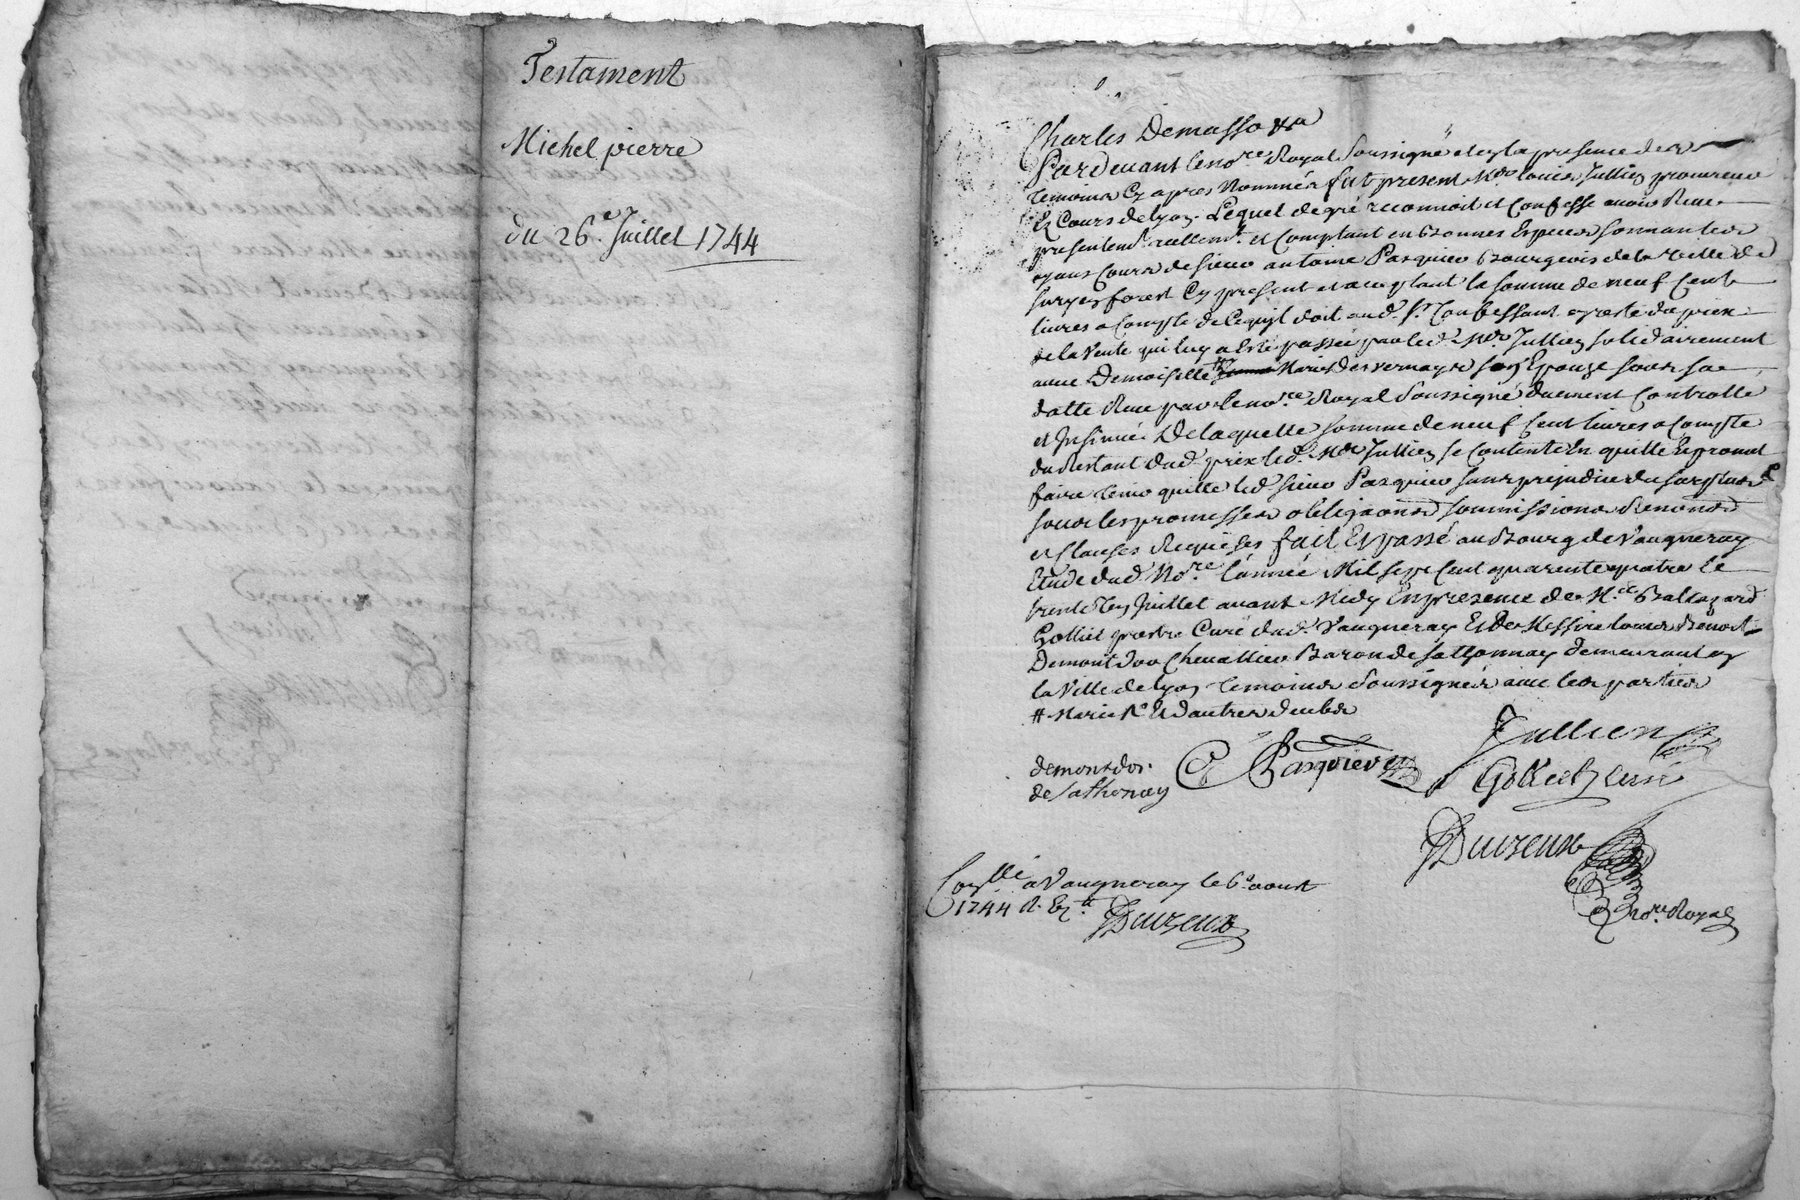 Testament
Michel pierre
du 26.e Juillet 1744
Charles Demasso
Pardevant le no.re Royal Soussigné et en la presence des
temoins Cy apres Nommés fut present M.e louis Jullien procureur
Ez Cours de lyon. Lequel de gré reconnoit et Confesse avoir Reue
presentem.t reellem.t et Comptant en Bonnes Especes sonnantes
ayans Cours de sieur antoine Pasquier Bourgeois de la Ville de
en forest Cy present et aceptant la somme de neuf Cent
livres a Compte de Ce quil doit aud. s.r Confessant de reste du prix
de la Vente qui luy a Eté passée par led. M.e Jullien solidairement
avec Demoiselle # Marie desvernays son Epouze sous sa
datte Reue par le no.re Royal Soussigné duement Controllé
et Insinué De laquelle somme de neuf Cent livres a Compte
du Restant dud. prix led. M.e Jullien se Contente En quitte Et promet
faire tenir quitte led. sieur Pasquier sans prejudice du surplus
sous les promesses obligaons soumissions Renonons
et Clauses Requises fait Et passé au Bourg de Vaugneray
Etude dud. No.re l'année Mil sept Cent quarente quatre le
trente Juillet avant Midy En presence de M.re Baltazard
Golliet prestre Curé dud. Vaugneray Et de Messire louis Benoit
Demontdor Chevallier Baron de sathonnay demeurant en
la Ville de lyon temoins Soussignés avec les parties
# Marie R.e Et d'autres
demontdor
de sathonay
Pasquier
Jullien
Golliet Curé
Duizeux
No.re Royal
Con.llé a Vaugneray le 6.e aoust
1744 R.
Duizeux